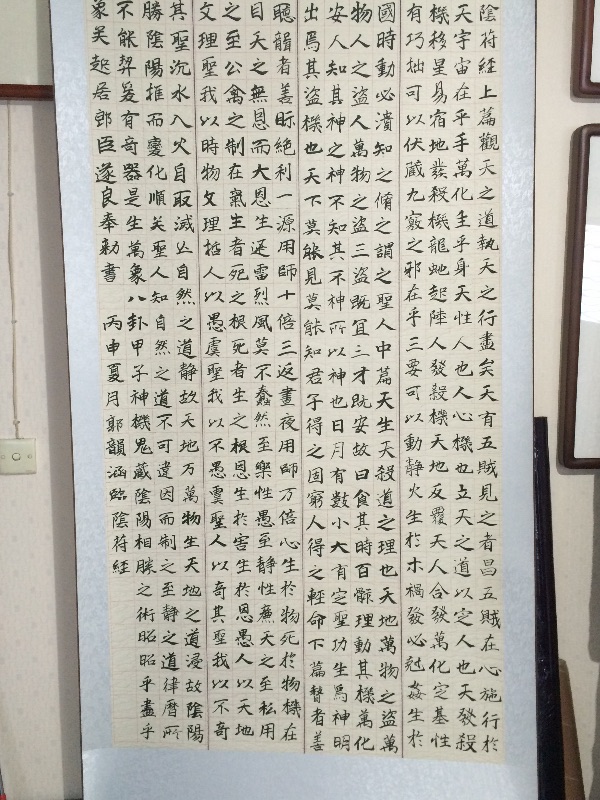 陰符經上篇觀天之道執天之行盡矣天有五賊見之者昌五賊在心施行於
天宇宙在乎手萬化生乎身天性人也人心機也立天之道以定人也天發殺
機移星易宿地發殺機龍虵起陸人發殺機天地反覆天人合發萬化定基性
有巧拙可以伏蔵九竅之邪在乎三要可以動静火生於木禍發必尅姦生於
國時動必潰知之脩之謂之聖人中篇天生天殺道之理也天地萬物之盜萬
物人之盜人萬物之盜三盜既宜三才既安故曰食其時百骸理動其機萬化
安人知其神之神不知其不神所以神也日月有數小大有定聖功生焉神明
出焉其盜機也天下莫能見莫能知君子得之固窮人得之輕命下篇瞽者善
聴者善眎絕利一源用師十倍三返晝夜用師万倍心生於物死於物機在
目天之無恩而大恩生迅雷烈風莫不蠢然至樂性愚至静性廉天之至私用
之至公禽之制在氣生者死之根死者生之根恩生於害生於恩愚人以天地
文理聖我以時物文理人以愚虞聖我以不愚虞聖人以奇其聖我以不奇
其聖沉水入火自取滅亡自然之道静故天地万萬物生天地之道浸故陰陽
勝陰陽推而變化順矣聖人知自然之道不可違因而制之至静之道律曆所
不能契爰有奇器是生萬象八卦甲子神機鬼蔵陰陽相勝之術昭昭乎盡乎
象矣起居郎臣遂良奉勅書 丙申夏月郭韻涵臨陰符經